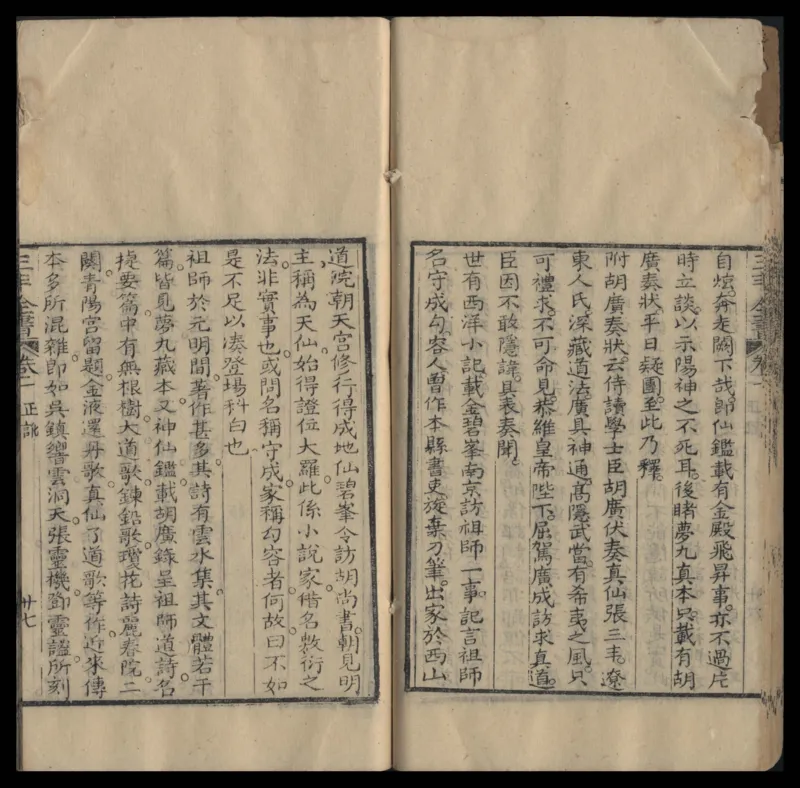 自炫。奔走闕下哉。卽仙鑑載有金殿飛昇事。亦不過片
時立談。以示陽神之不死耳。後睹夢九真本。只載有胡
廣奏狀。平日疑團。至此乃釋。
附胡廣奏狀云。侍讀學士臣胡廣伏奏真仙張三丰。遼
東人氏。深藏道法。廣具神通。高隱武當。有希夷之風。只
可禮求。不可命見。恭維皇帝陛下。屈駕廣成。訪求真道。
臣因不敢隱諱。具表奏聞。
世有西洋小記載金碧峯南京訪祖師一事。記言祖師
名守成。勾容人。曾作本縣書吏。旋棄刀筆。出家於西山
道院。朝天宮修行。得成地仙。碧峯令訪胡尚書。朝見明
主。稱為天仙。始得證位大羅。此係小說家借名敷衍之
法。非實事也。或問名稱守成家稱勾容者何故。曰不如
是不足以湊登塲科白也。
祖師於元明間。著作甚多。其詩有雲水集。其文體若干
篇。皆見夢九藏本。又神仙鑑載胡廣錄呈祖師道詩名
提要。篇中有無根樹大道歌。鍊鉛歌。瓊花詩。麗春院二
闋。青陽宮留題。金液還丹歌。真仙了道歌等作。近來傳
本多所混雜。卽如吳鎮響雲洞天。張靈機。鄧靈謐所刻
三丰全書
卷一
正訛
廿七